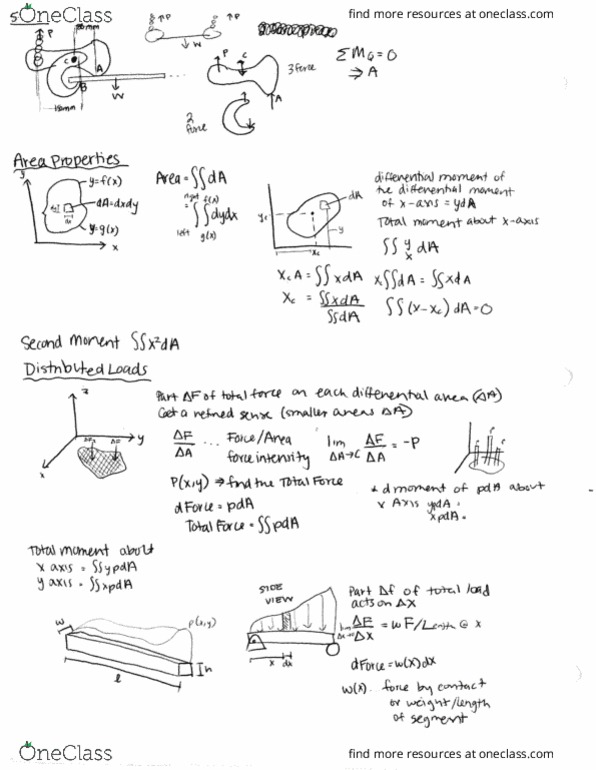 OneClass
find more resources at oneclass.com
5
P
30mm
C
A
B
W
18mm
P
P
W
P
C
A
3 force
2 force
ΣM_G=0
→ A
Area Properties
y
y=f(x)
dA=dxdy
y=g(x)
dx
x
Area=∫∫dA
right f(x)
∫∫dydx
left g(x)
dA
yc
y
xc
differential moment of
the differential moment
of x-axis = ydA
Total moment about x-axis
∫∫ y dA
x
XcA=∫∫xdA
X∫∫dA=∫∫xdA
Xc = ∫∫xdA / ∫∫dA
∫∫(x-xc)dA=0
Second Moment ∫∫x²dA
Distributed Loads
z
y
x
Part ΔF of total force on each differential area (ΔA)
Get a refined sense (smaller areas ΔA)
ΔF/ΔA ... Force/Area
force intensity
lim ΔA→C ΔF/ΔA = -P
P(x,y) → find the Total Force
dForce = pdA
Total Force = ∫∫pdA
* d moment of pdA about
x Axis ypdA
xpdA =
Total moment about
x axis = ∫∫ypdA
y axis = ∫∫xpdA
w
p(x,y)
h
l
SIDE
VIEW
x
dx
Part Δf of total load
acts on ΔX
lim Δx→0 ΔF/ΔX = wF/Length @ x
dForce=w(x)dx
w(x)... force by contact
or weight/length
of segment
OneClass
find more resources at oneclass.com